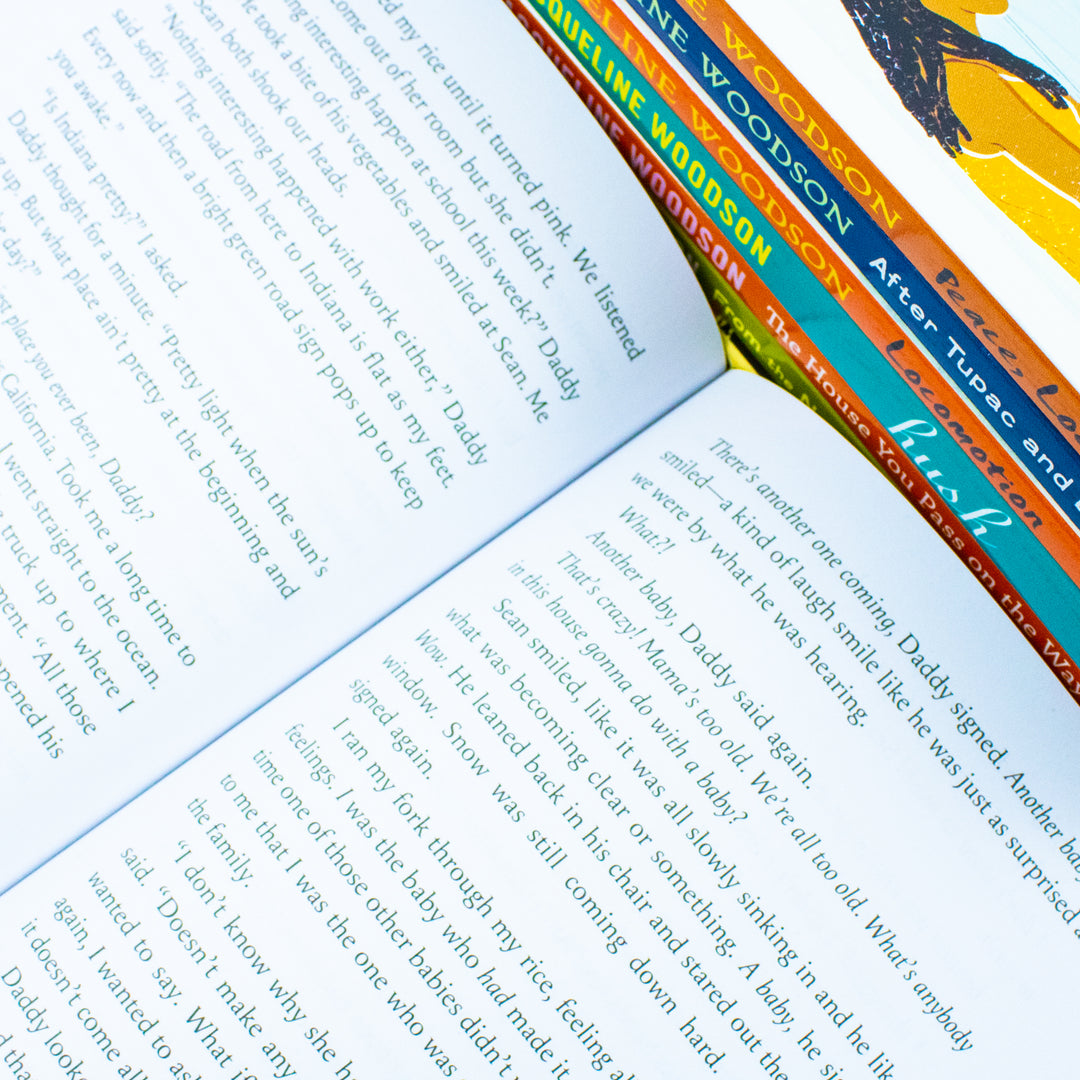 my rice until it turned pink. We listened
come out of her room but she didn't.
interesting happen at school this week?" Daddy
He took a bite of his vegetables and smiled at Sean. Me
Sean both shook our heads.
"Nothing interesting happened with work either," Daddy
said softly. "The road from here to Indiana is flat as my feet.
Every now and then a bright green road sign pops up to keep
you awake."
"Is Indiana pretty?" I asked.
Daddy thought for a minute. "Pretty light when the sun's
up. But what place ain't pretty at the beginning and
day?"
place you ever been, Daddy?
California. Took me a long time to
I went straight to the ocean.
truck up to where I
"All those
his
There's another one coming, Daddy signed. Another
smiled—a kind of laugh smile like he was just as surprised
we were by what he was hearing.
What?!
Another baby, Daddy said again.
That's crazy! Mama's too old. We're all too old. What's anybody
in this house gonna do with a baby?
Sean smiled, like it was all slowly sinking in and he
what was becoming clear or something. A baby, he
Wow. He leaned back in his chair and stared out the
window. Snow was still coming down hard.
signed again.
I ran my fork through my rice, feeling
feelings. I was the baby who had made it
time one of those other babies didn't
to me that I was the one who was
the family.
"I don't know why she
said. "Doesn't make any
wanted to say. What if
again, I wanted to
it doesn't come
Daddy
WOODSON Peace,
WOODSON After Tupac and
WOODSON Locomotion
JACQUELINE WOODSON hush
WOODSON The House You Pass on the Way
From the